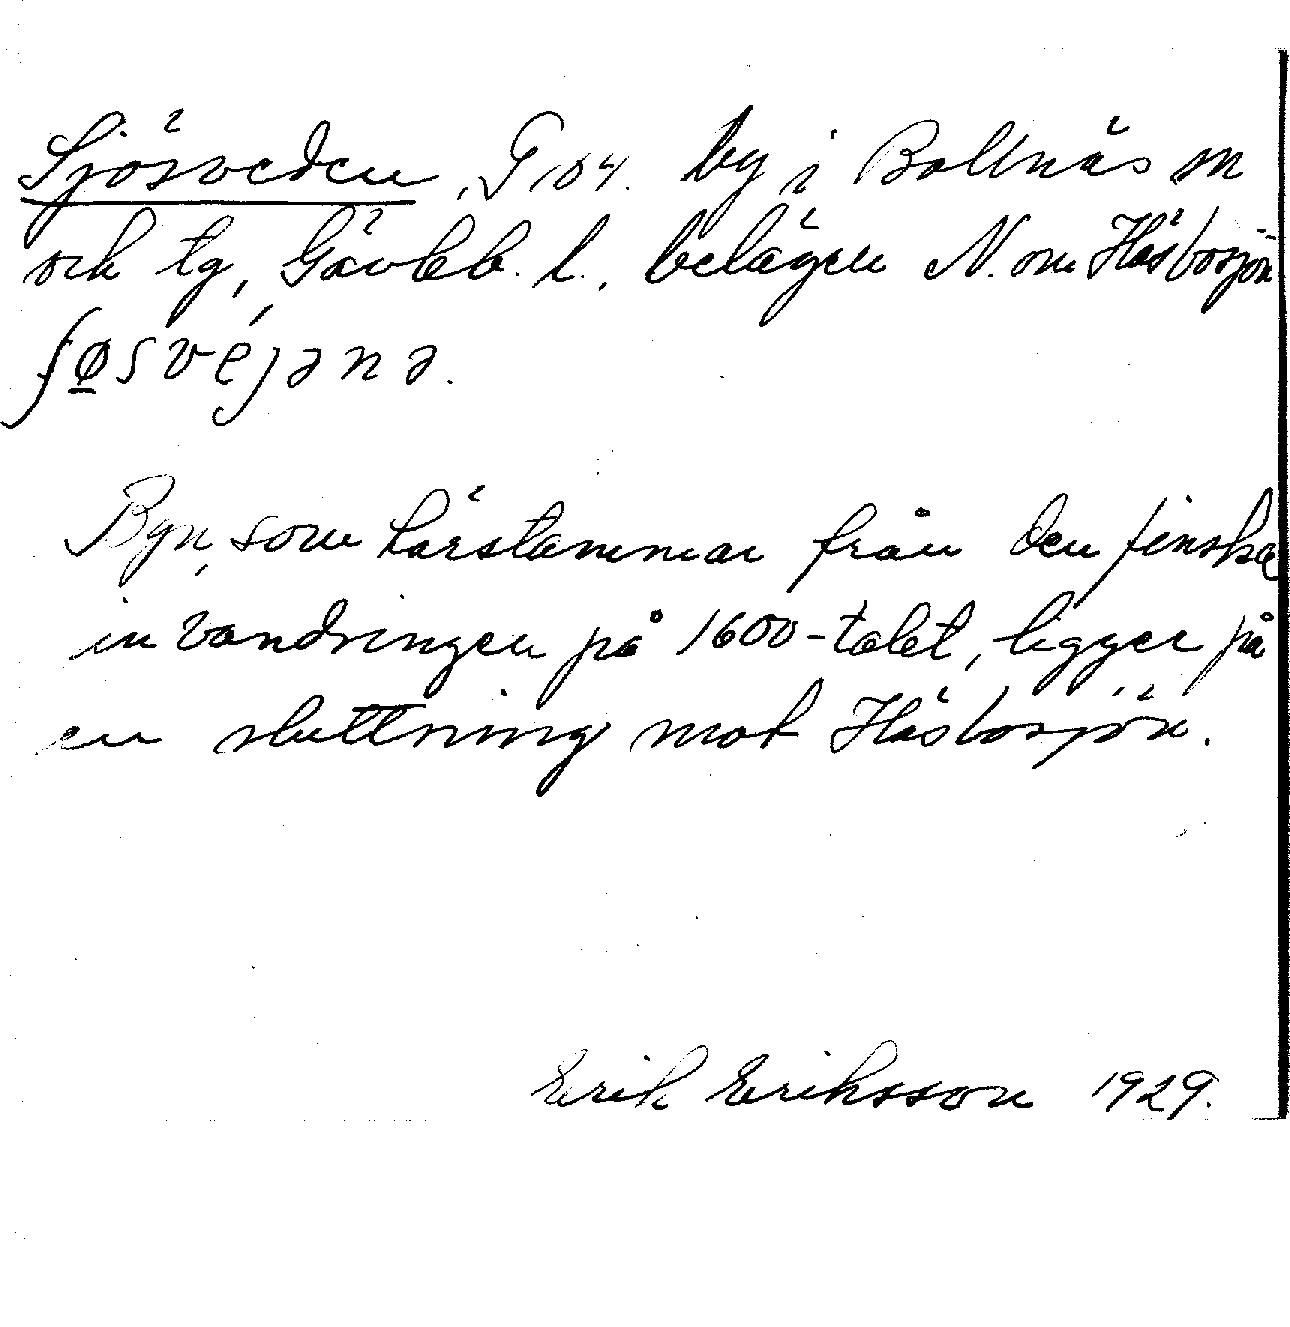 Sjösveden, G 104. by i Bollnäs sn
och tg, Gävleb. l. belägen N. om Häsbosjön
ʃøsvéjənə.
Byn, som härstammar från den finska
invandringen på 1600-talet, ligger på
en sluttning mot Häsbosjön.
Erik Eriksson 1929.